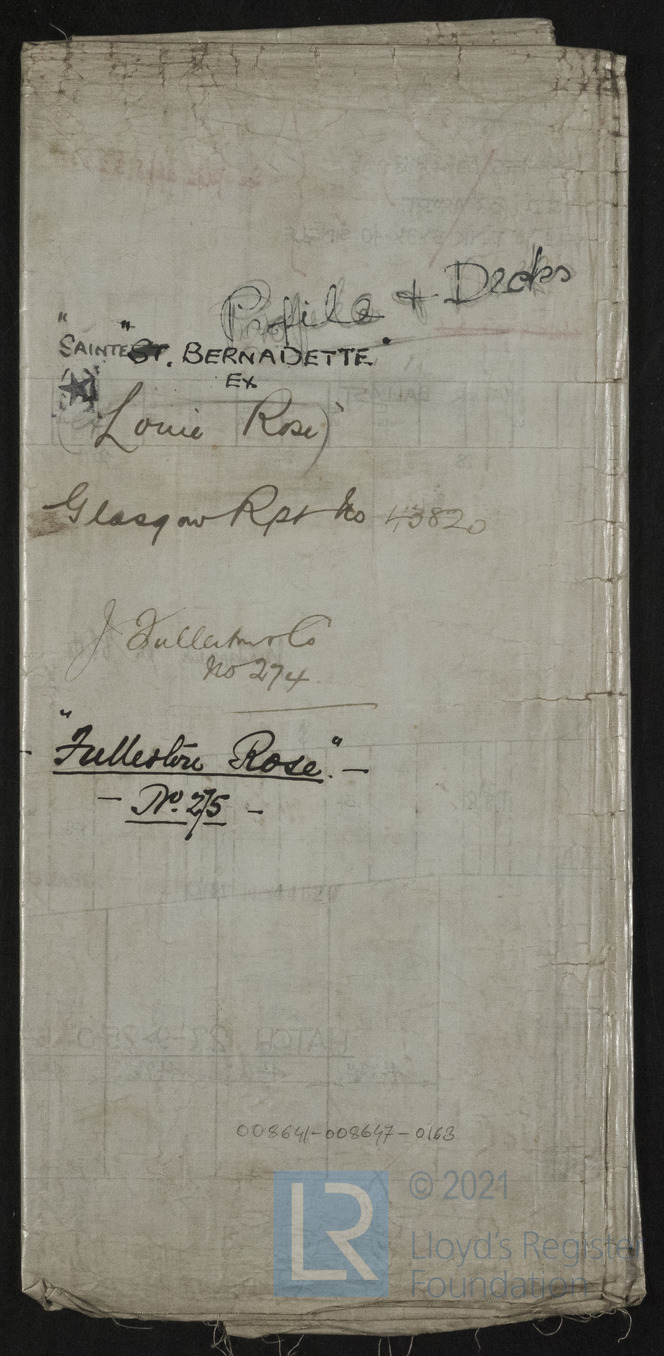 Profile & Decks
"SAINTE" ST. BERNADETTE"
Ex
(Louie Rose)"
Glasgow Rpt No 43820
J Fullerton & Co
No 274
"Fullerton Rose". –
– No. 275 –
HATCH 27-9 × 25-0
008641-008647-016B
LR
© 2021
Lloyd's Register
Foundation